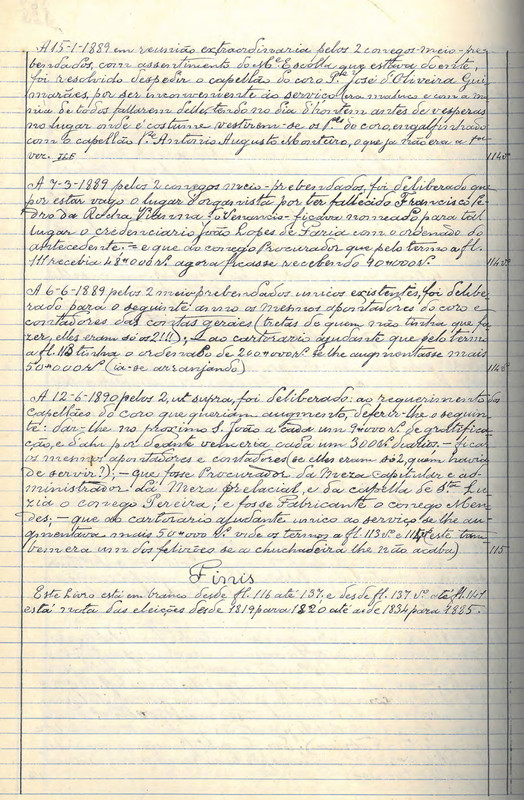 A 15-1-1889 em reunião extraordinaria pelos 2 conegos meio-pre-
bendados, com assentimento do Mᵉ Escolla que estava doente,
foi resolvido despedir o capellão do coro Pᵉ José d'Oliveira Gui-
marães, por ser inconveniente ao serviço (era maluco e com a ma-
nia de todos fallarem delle, tendo no dia d'hontem antes de vesperas
no lugar onde é costume vestirem-se os do coro, engalfinhado
com o capellão Pᵉ Antonio Augusto Monteiro, o que já não era a pri-
114 vº
A 7-3-1889 pelos 2 conegos meio-prebendados, foi deliberado que
por estar vago o lugar d'organista por ter fallecido Francisco Pe-
dro da Rocha Vianna, o Venancio - ficava nomeado para tal
lugar o credenciario João Lopes de Faria com o ordenado do
antecedente. = e que o conego Procurador que pelo termo a fl.
111 recebia 48$000 rs. agora ficasse recebendo 90$000 rs.
114 vº
A 6-6-1889 pelos 2 meio-prebendados unicos existentes, foi delibe-
rado para o seguinte anno os mesmos apontadores do coro e
contadores das contas geraes (tretas de quem não tinha que fa-
zer, elles eram só os 2!!!); - ao cartorario ajudante que pelo termo
a fl. 113 tinha o ordenado de 200$000 rs. se lhe augmentasse mais
50$000 rs. (ia-se arranjando)
114 vº
A 12-6-1890 pelos 2, ut supra, foi deliberado: ao requerimento dos
capellães do coro que queriam augmento, deferir-lhe o seguin-
te: dar-lhe no proximo S. João a cada um 9$000 rs. de gratifica-
ção, e d'ahi por deante venceria cada um 300 rs. diarios - ficar
os mesmos apontadores e contadores (se elles eram só 2, quem havia
de servir?); - que fosse Procurador da Meza Capitular e ad-
ministrador da Meza prelacial, e da capella de Sᵗᵃ Lu-
zia o conego Pereira; e fosse Fabricante o conego Men-
des; - que ao cartorario ajudante unico ao serviço se lhe au-
gmentava mais 50$000 rs. vide os termos a fl. 113 vº e 114 vº este tam-
bem era um dos felizões se a chuchadeira lhe não acaba)
115
Finis
Este Livro está em branco desde fl. 116 até 137; e desde fl. 137 vº até fl. 141
está nota das eleições desde 1819 para 1820 até a de 1834 para 1835.